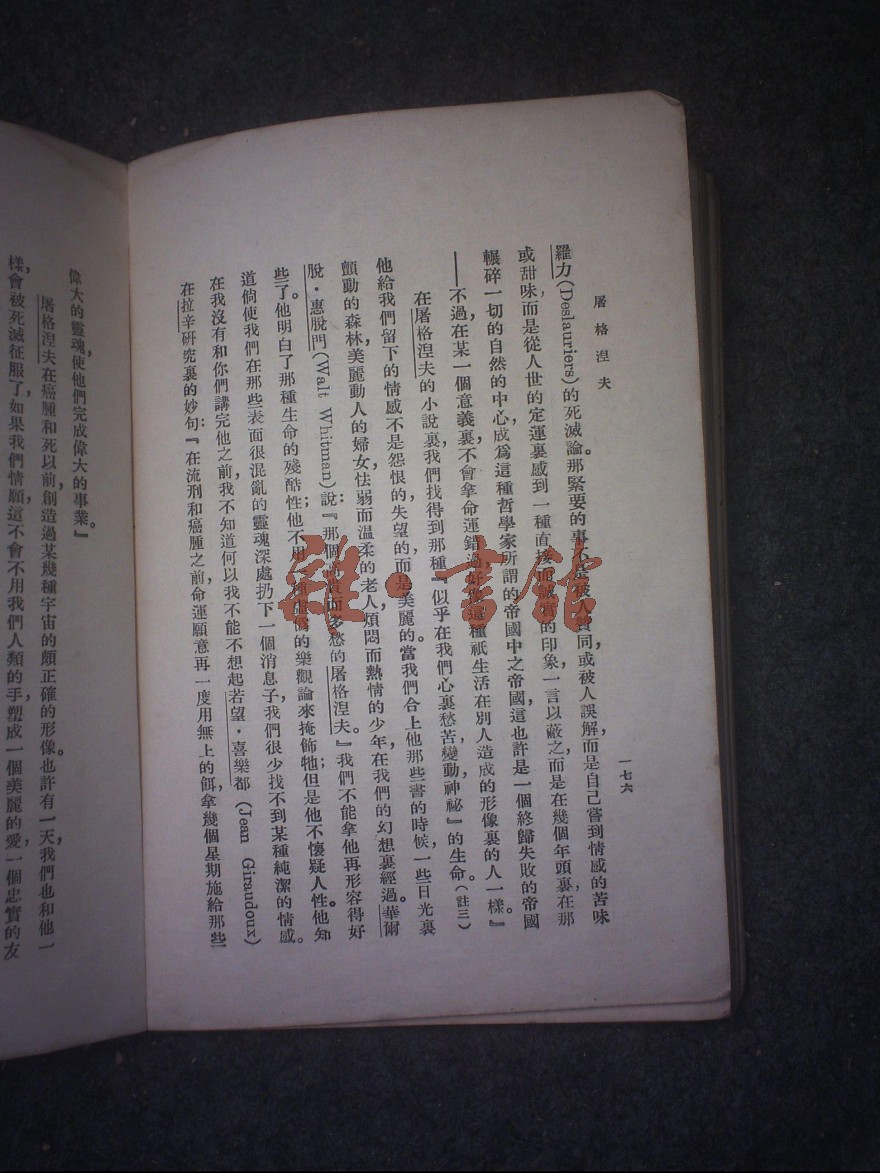 屠格涅夫
一七六
羅力(Deslauriers)的死滅論。那緊要的事不是被人贊同，或被人誤解，而是自己嘗到情感的苦味
或甜味，而是從人世的定運裏感到一種直接而誠實的印象，一言以蔽之，而是在幾個年頭裏，在那
輾碎一切的自然的中心，成爲這種哲學家所謂的帝國中之帝國，這也許是一個終歸失敗的帝國
——不過在某一個意義裏，不會拿命運錯過，好像這種祇生活在別人造成的形像裏的人一樣。』
在屠格涅夫的小說裏，我們找得到那種『似乎在我們心裏愁苦變動神祕』的生命。(註三)
他給我們留下的情感不是怨恨的失望的，而是美麗的。當我們合上他那些書的時候，一些日光裏
顫動的森林，美麗動人的婦女，怯弱而溫柔的老人，煩悶而熱情的少年，在我們的幻想裏經過。華爾
脫・惠脫門(Walt Whitman)說：『那個 而多愁的屠格涅夫。』我們不能拿他再形容得好
些了。他明白了那種生命的殘酷性；他不用一種虛僞的樂觀論來掩飾牠；但是他不懷疑人性。他知
道倘使我們在那些表面很混亂的靈魂深處扔下一個消息子，我們很少找不到某種純潔的情感。
在我沒有和你們講完他之前，我不知道何以我不能不想起若望・喜樂都(Jean Giraudoux)
在拉辛研究裏的妙句：『在流刑和癌腫之前，命運願意再一度用無上的餌，拿幾個星期施給那些
偉大的靈魂，使他們完成偉大的事業。』
屠格涅夫在癌腫和死以前，創造過某幾種宇宙的頗正確的形像。也許有一天，我們也和他一
樣，會被死滅征服了。如果我們情願，這不會不用我們人類的手，塑成一個美麗的愛，一個忠實的友
雜・書館